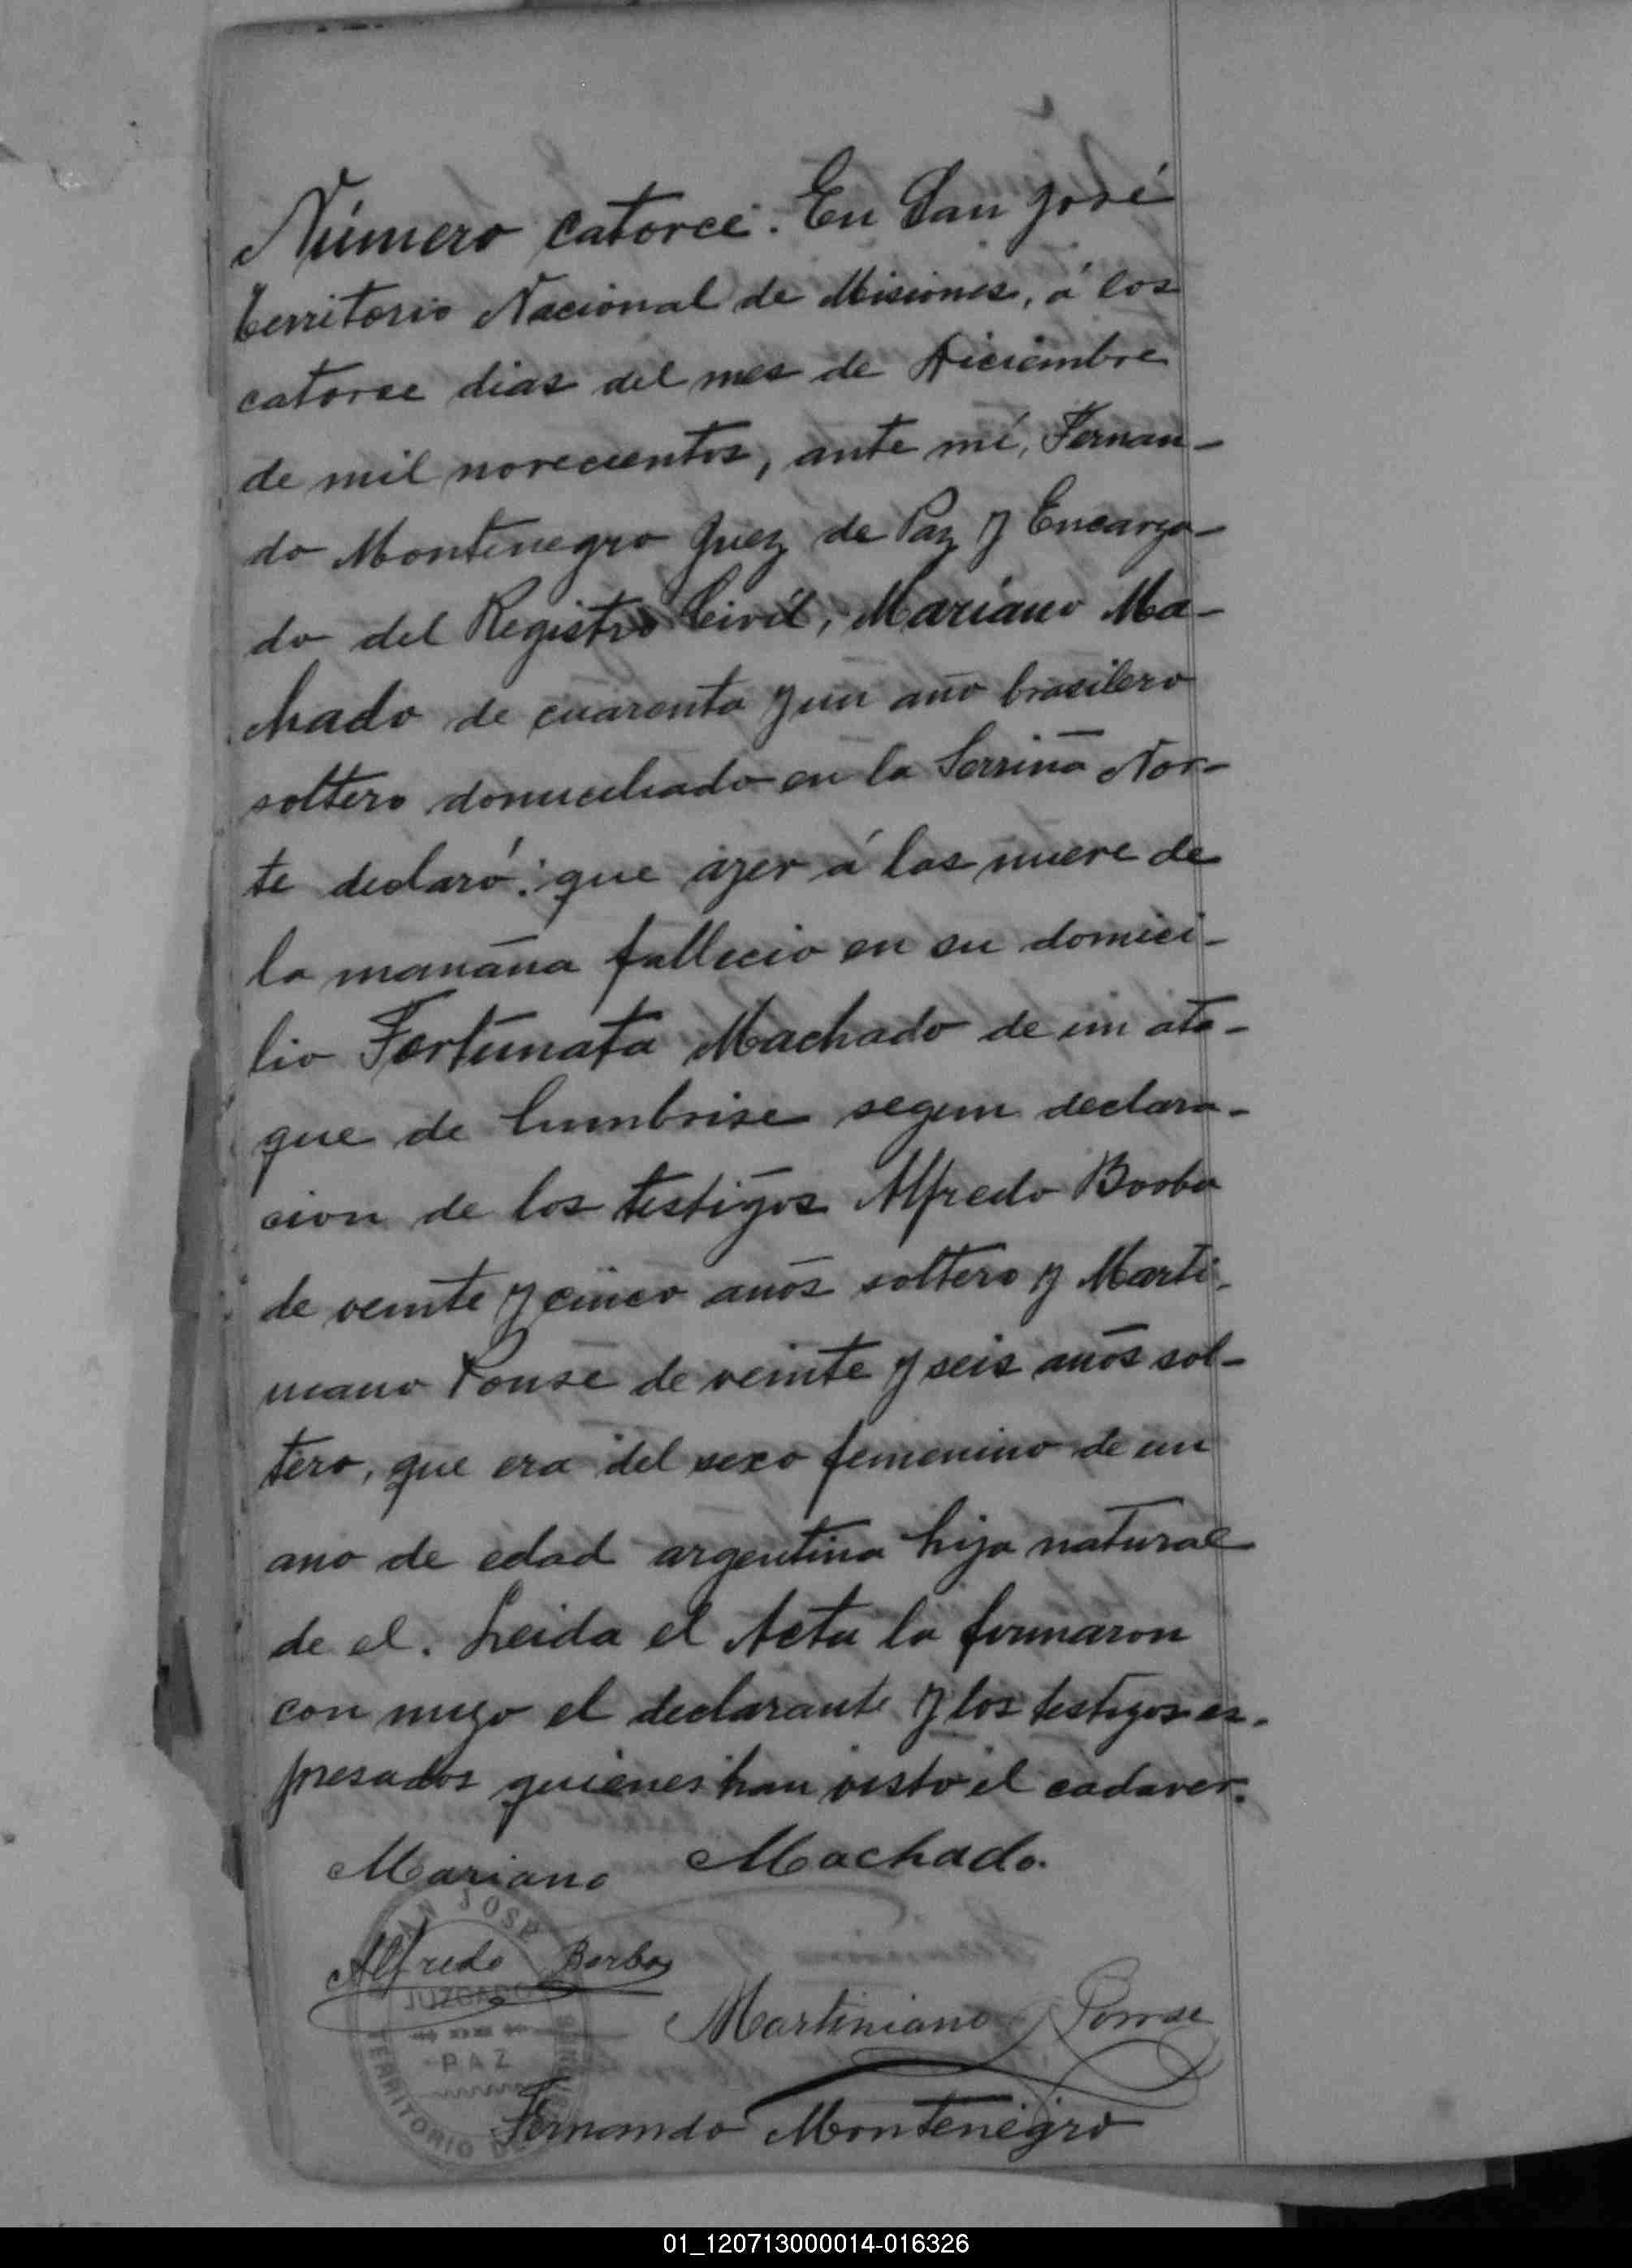 Número catorce. En San José
territorio Nacional de Misiones, á los
catorce dias del mes de Diciembre
de mil novecientos, ante mí, Fernan-
do Montenegro Juez de Paz y Encarga-
do del Registro Civil, Mariano Ma-
chado de cuarenta y un año brasilero
soltero domiciliado en la Serriña Nor-
te declaró: que ayer á las nueve de
la mañana fallecio en su domici-
lio Fortunata Machado de un ata-
que de lumbrise segun declara-
cion de los testigos Alfredo Borba
de veinte y cinco años soltero y Marti-
niano Ponse de veinte y seis años sol-
tero, que era del sexo femenino de un
año de edad argentina hija natural
de el. Leida el Acta la firmaron
con migo el declarante y los testigos es-
presados quienes han visto el cadaver.
Mariano Machado.
Alfredo Borba
Martiniano Ponse
Fernando Montenegro
SAN JOSÉ
JUZGADO
PAZ
TERRITORIO DE
01_120713000014-016326